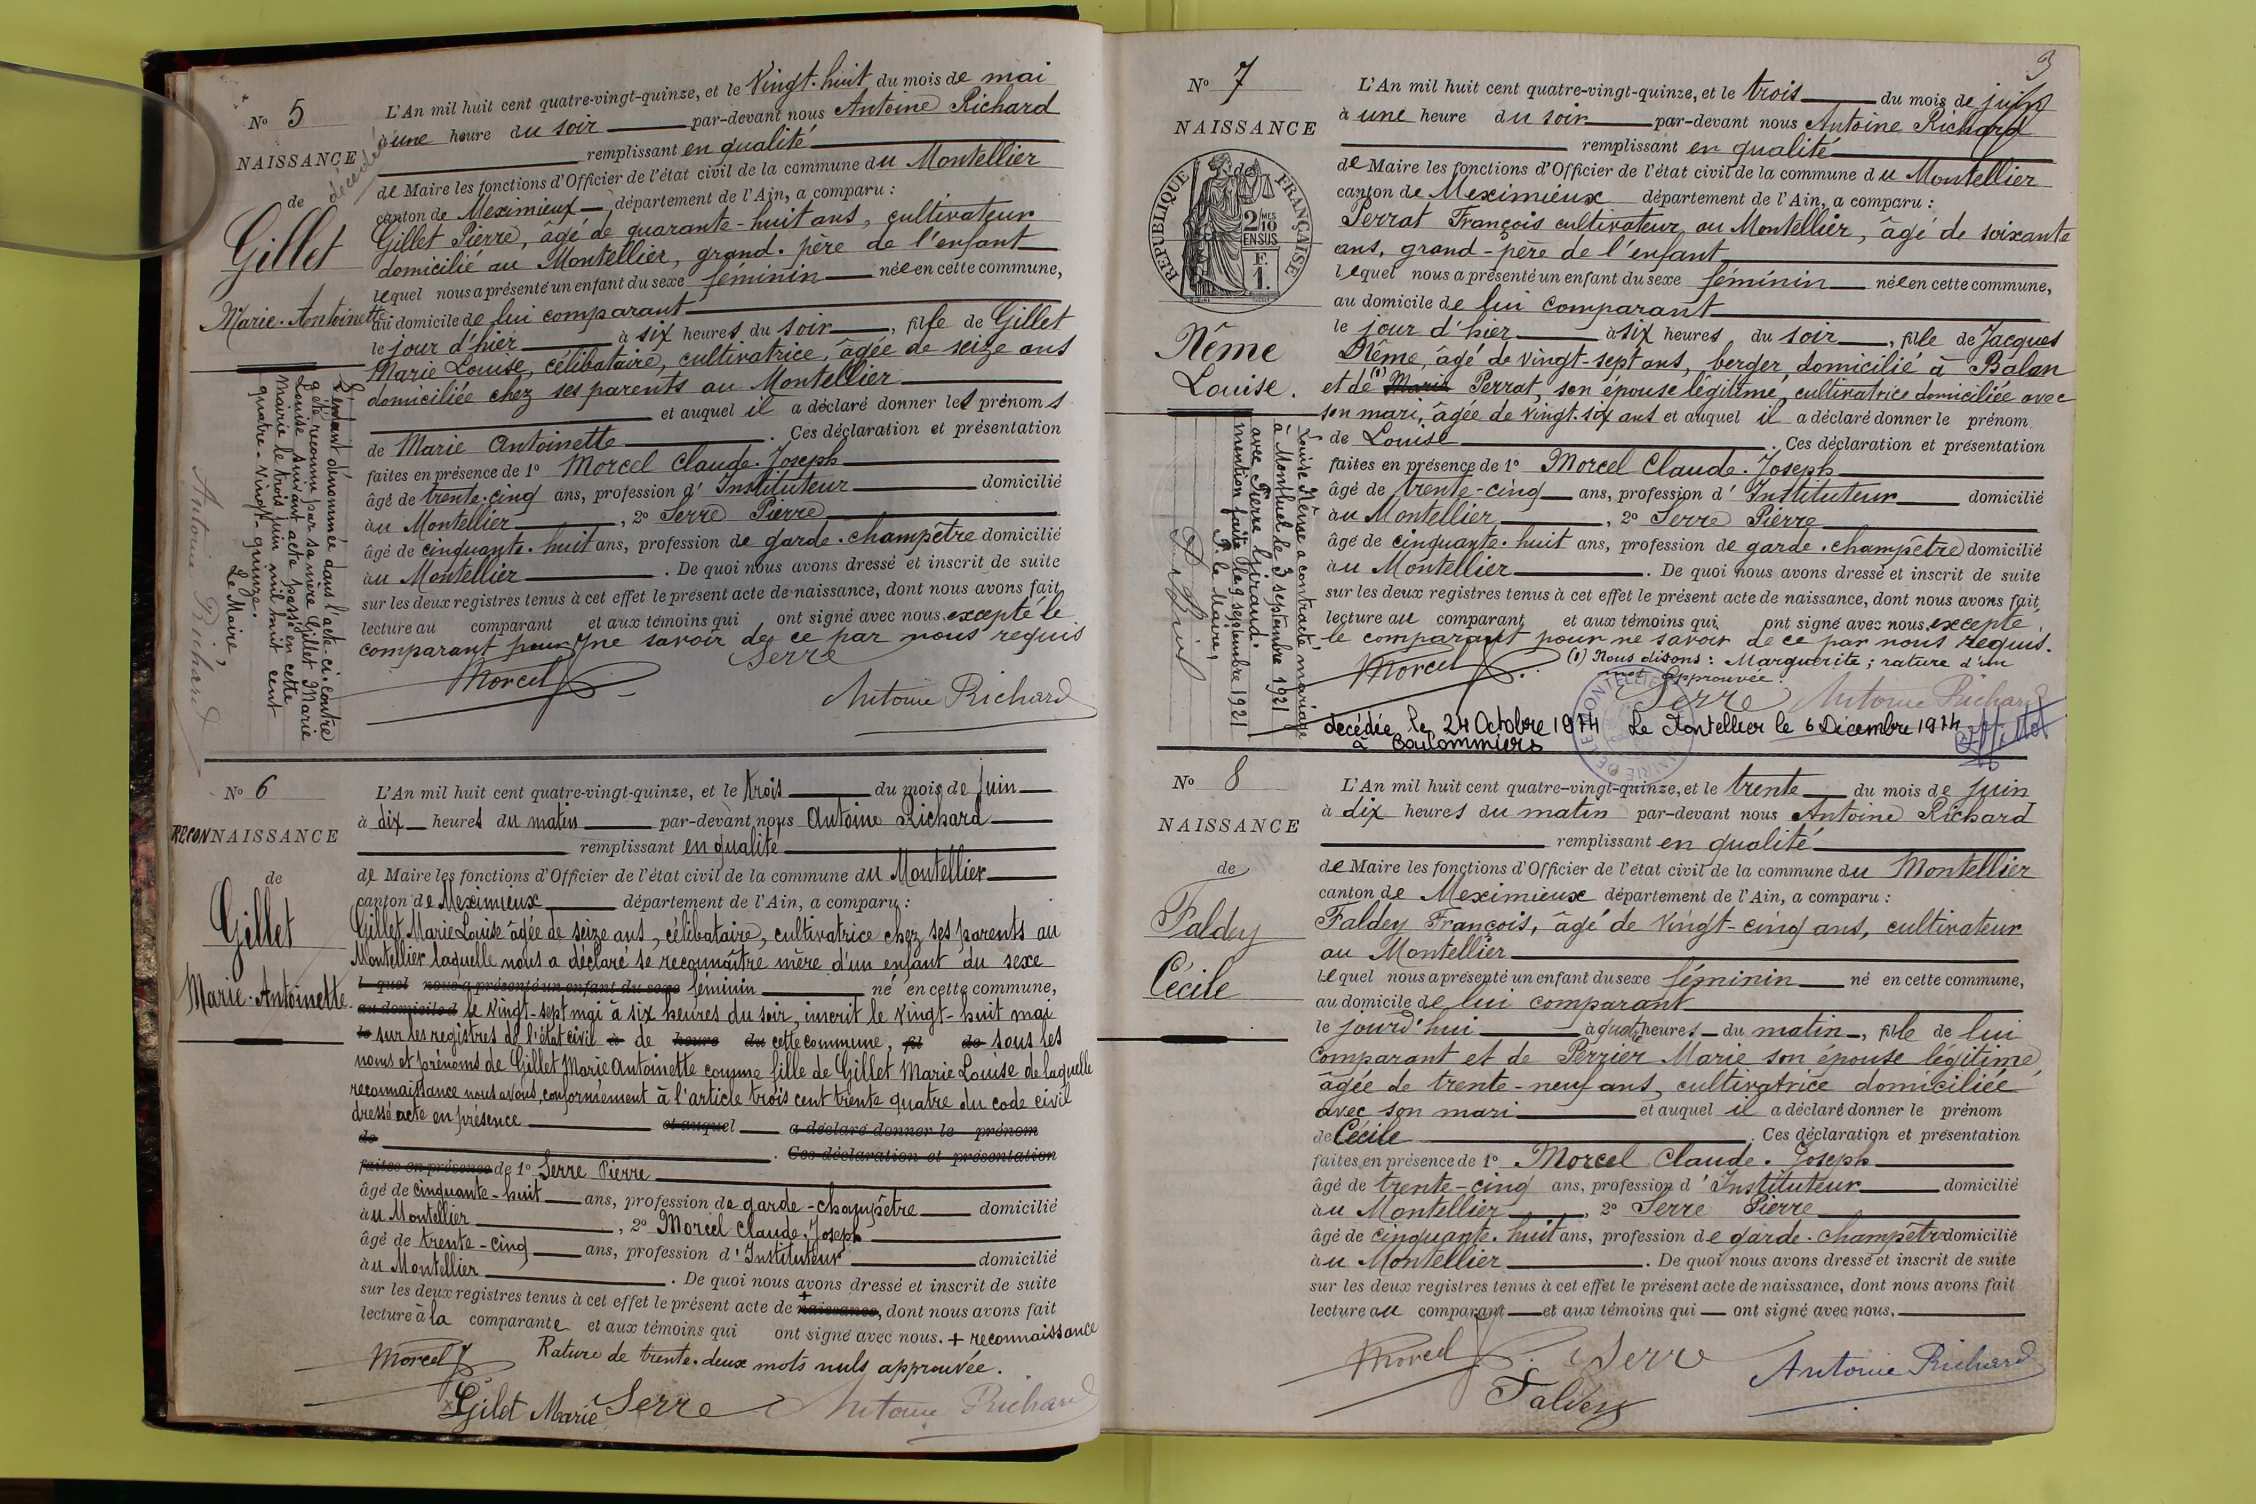 N° 5
NAISSANCE
de
décédé
Gillet
Marie-Antoinette
L'An mil huit cent quatre-vingt-quinze, et le Vingt-huit du mois de mai
à une heure du soir par-devant nous Antoine Richard
remplissant en qualité
de Maire les fonctions d'Officier de l'état civil de la commune du Montellier
canton de Meximieux, département de l'Ain, a comparu :
Gillet Pierre, âgé de quarante-huit ans, cultivateur
domicilié au Montellier, grand-père de l'enfant
lequel nous a présenté un enfant du sexe féminin née en cette commune,
au domicile de lui comparant
le jour d'hier à six heures du soir, fille de Gillet
Marie Louise, célibataire, cultivatrice, âgée de seize ans
domiciliée chez ses parents au Montellier
et auquel il a déclaré donner les prénoms
de Marie Antoinette. Ces déclaration et présentation
faites en présence de 1° Morcel Claude-Joseph
âgé de trente-cinq ans, profession d'Instituteur domicilié
au Montellier, 2° Serre Pierre
âgé de cinquante-huit ans, profession de garde-champêtre domicilié
au Montellier. De quoi nous avons dressé et inscrit de suite
sur les deux registres tenus à cet effet le présent acte de naissance, dont nous avons fait
lecture au comparant et aux témoins qui ont signé avec nous excepté le
comparant pour ne savoir de ce par nous requis
Morcel Serre
Antoine Richard
L'enfant dénommée dans l'acte ci-contre
a été reconnue par sa mère Gillet Marie
Louise suivant acte passé en cette
mairie le trois juin mil huit cent
quatre-vingt-quinze.
Le Maire,
Antoine Richard
N° 6
RECONNAISSANCE
de
Gillet
Marie-Antoinette
L'An mil huit cent quatre-vingt-quinze, et le trois du mois de Juin
à dix heures du matin par-devant nous Antoine Richard
remplissant en qualité
de Maire les fonctions d'Officier de l'état civil de la commune du Montellier
canton de Meximieux département de l'Ain, a comparu :
Gillet Marie Louise âgée de seize ans, célibataire, cultivatrice chez ses parents au
Montellier laquelle nous a déclaré se reconnaître mère d'un enfant du sexe
l quel nous a présenté un enfant du sexe féminin né en cette commune,
au domicile d le vingt-sept mai à six heures du soir, inscrit le vingt-huit mai
le sur les registres de l'état civil à de heure du cette commune, fil de sous les
noms et prénoms de Gillet Marie Antoinette comme fille de Gillet Marie Louise de laquelle
reconnaissance nous avons, conformément à l'article trois cent trente quatre du code civil
dressé acte en présence et auquel a déclaré donner le prénom
de Ces déclaration et présentation
faites en présence de 1° Serre Pierre
âgé de cinquante-huit ans, profession de garde-champêtre domicilié
au Montellier, 2° Morcel Claude-Joseph
âgé de trente-cinq ans, profession d'Instituteur domicilié
au Montellier. De quoi nous avons dressé et inscrit de suite
sur les deux registres tenus à cet effet le présent acte de naissance, dont nous avons fait
lecture à la comparante et aux témoins qui ont signé avec nous. + reconnaissance
Rature de trente-deux mots nuls approuvée.
Morcel
Gilet Marie Serre Antoine Richard
3
N° 7
NAISSANCE
de
RÉPUBLIQUE FRANÇAISE
2/10 MES
EN SUS
F.
1.
Nême
Louise.
L'An mil huit cent quatre-vingt-quinze, et le trois du mois de juin
à une heure du soir par-devant nous Antoine Richard
remplissant en qualité
de Maire les fonctions d'Officier de l'état civil de la commune du Montellier
canton de Meximieux département de l'Ain, a comparu :
Perrat François cultivateur au Montellier, âgé de soixante
ans, grand-père de l'enfant
lequel nous a présenté un enfant du sexe féminin née en cette commune,
au domicile de lui comparant
le jour d'hier à six heures du soir, fille de Jacques
Nême, âgé de vingt-sept ans, berger domicilié à Balan
et de (1) Marie Perrat, son épouse légitime, cultivatrice domiciliée avec
son mari, âgée de vingt-six ans et auquel il a déclaré donner le prénom
de Louise. Ces déclaration et présentation
faites en présence de 1° Morcel Claude-Joseph
âgé de trente-cinq ans, profession d'Instituteur domicilié
au Montellier, 2° Serre Pierre
âgé de cinquante-huit ans, profession de garde-champêtre domicilié
au Montellier. De quoi nous avons dressé et inscrit de suite
sur les deux registres tenus à cet effet le présent acte de naissance, dont nous avons fait
lecture au comparant et aux témoins qui ont signé avec nous, excepté
le comparant pour ne savoir de ce par nous requis.
(1) Nous disons : Marguerite ; rature d'un
mot approuvée.
Morcel Serre Antoine Richard
décédée le 24 Octobre 1974 Le Montellier le 6 Décembre 1974
à Coulommiers
Louise Nême a contracté mariage
à Montluel le 3 septembre 1921
avec Pierre Giraud.
mention faite le 9 septembre 1921
P. le Maire,
N° 8
NAISSANCE
de
Faldey
Cécile
L'An mil huit cent quatre-vingt-quinze, et le trente du mois de juin
à dix heures du matin par-devant nous Antoine Richard
remplissant en qualité
de Maire les fonctions d'Officier de l'état civil de la commune du Montellier
canton de Meximieux département de l'Ain, a comparu :
Faldey François, âgé de vingt-cinq ans, cultivateur
au Montellier
lequel nous a présenté un enfant du sexe féminin né en cette commune,
au domicile de lui comparant
le jourd'hui à quatre heures du matin, fille de lui
comparant et de Perrier Marie son épouse légitime
âgée de trente-neuf ans, cultivatrice domiciliée
avec son mari et auquel il a déclaré donner le prénom
de Cécile. Ces déclaration et présentation
faites en présence de 1° Morcel Claude-Joseph
âgé de trente-cinq ans, profession d'Instituteur domicilié
au Montellier, 2° Serre Pierre
âgé de cinquante-huit ans, profession de garde-champêtre domicilié
au Montellier. De quoi nous avons dressé et inscrit de suite
sur les deux registres tenus à cet effet le présent acte de naissance, dont nous avons fait
lecture au comparant et aux témoins qui ont signé avec nous.
Morcel Serre Antoine Richard
Faldey